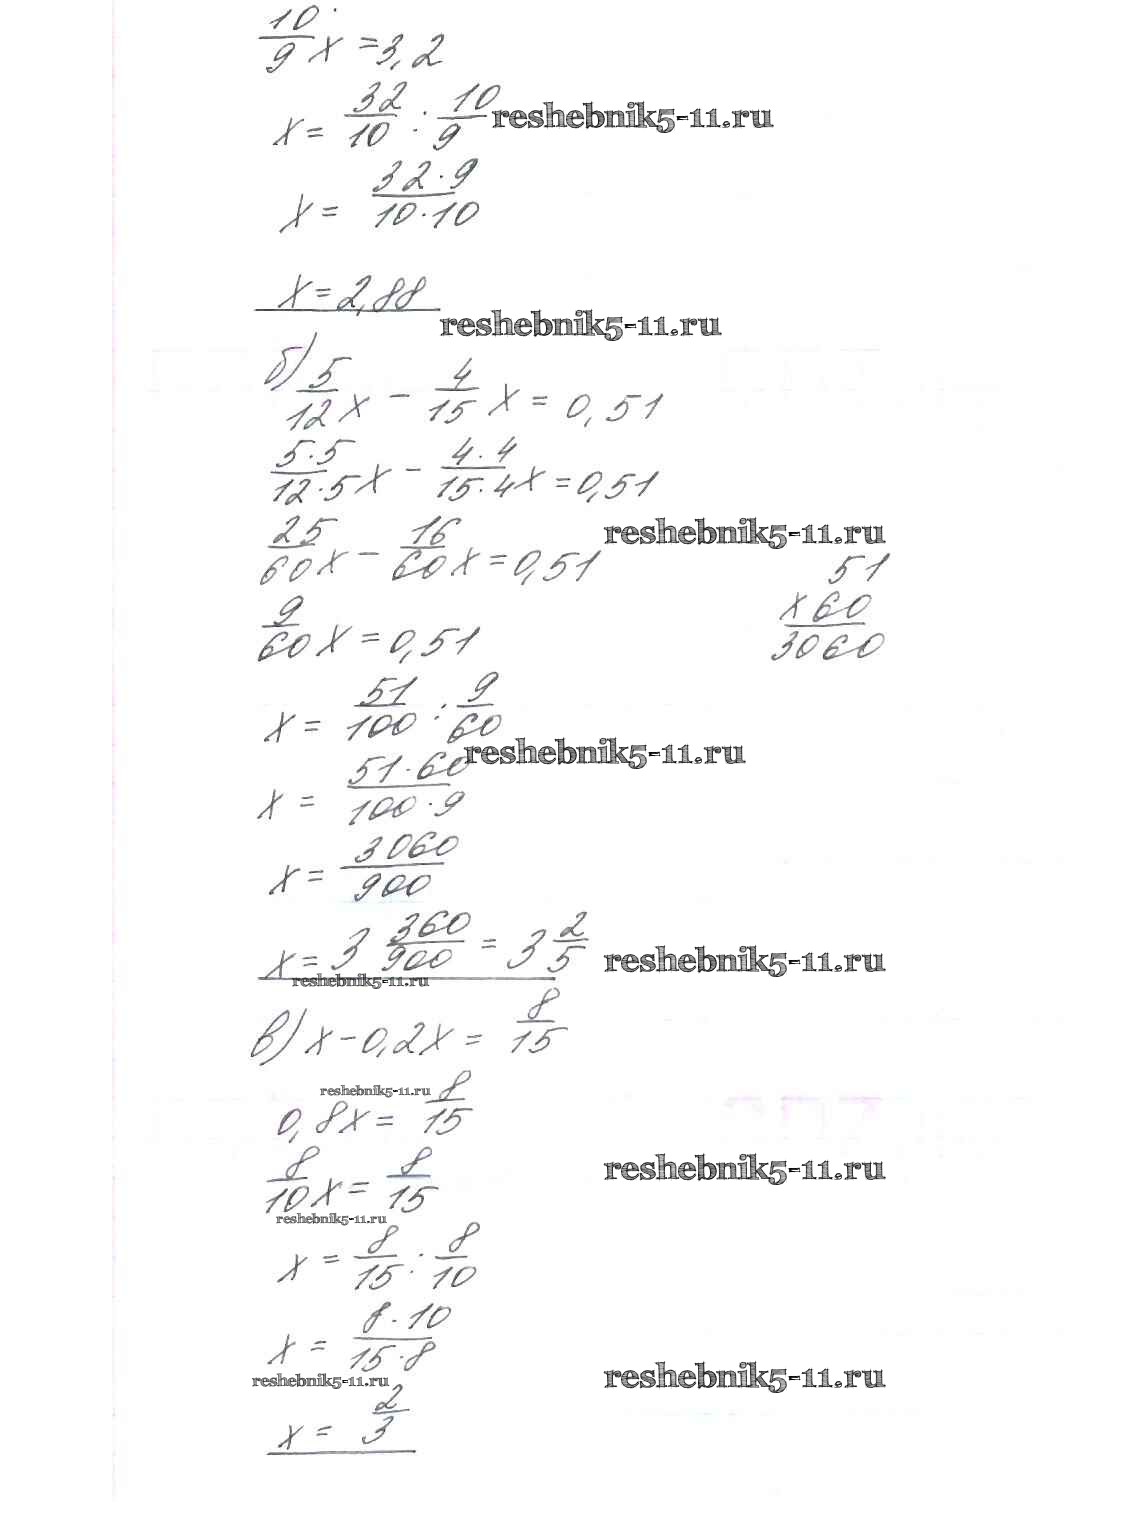 10/9 x = 3,2
x = 32/10 : 10/9 reshebnik5-11.ru
x = 32·9/10·10
x = 2,88
reshebnik5-11.ru
б) 5/12 x - 4/15 x = 0,51
5·5/12·5 x - 4·4/15·4 x = 0,51
25/60 x - 16/60 x = 0,51 reshebnik5-11.ru
51
x 60
3060
9/60 x = 0,51
x = 51/100 : 9/60
reshebnik5-11.ru
x = 51·60/100·9
x = 3060/900
x = 3 360/900 = 3 2/5 reshebnik5-11.ru
reshebnik5-11.ru
в) x - 0,2x = 8/15
reshebnik5-11.ru
0,8x = 8/15
8/10 x = 8/15 reshebnik5-11.ru
reshebnik5-11.ru
x = 8/15 : 8/10
x = 8·10/15·8
reshebnik5-11.ru reshebnik5-11.ru
x = 2/3